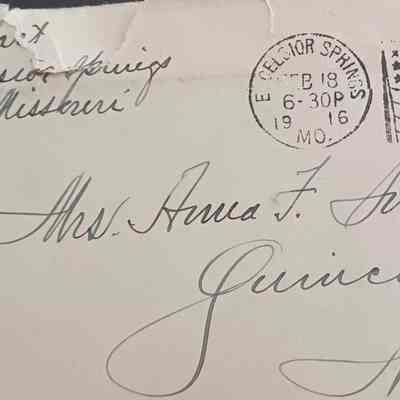 Springs
Missouri
EXCELSIOR SPRINGS
FEB 18
6-30P
1916
MO.
Mrs. Anna F.
Quinc